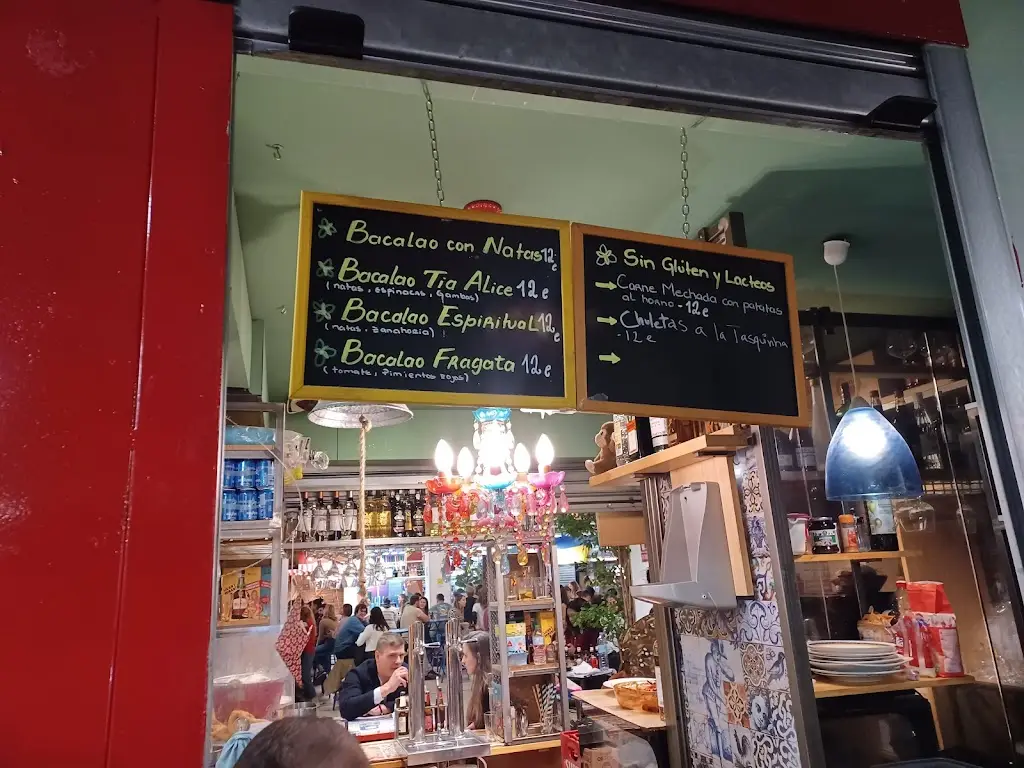 Bacalao con Natas 12 €
Bacalao Tia Alice 12 e
(natas, espinacas, gambas)
Bacalao Espiritual 12 e
(natas, zanahoria)
Bacalao Fragata 12 e
(tomate, Pimientos rojos)
Sin Glúten y Lacteos
Carne Mechada con patatas
al horno - 12 e
Chuletas a la Tasquinha
- 12 e